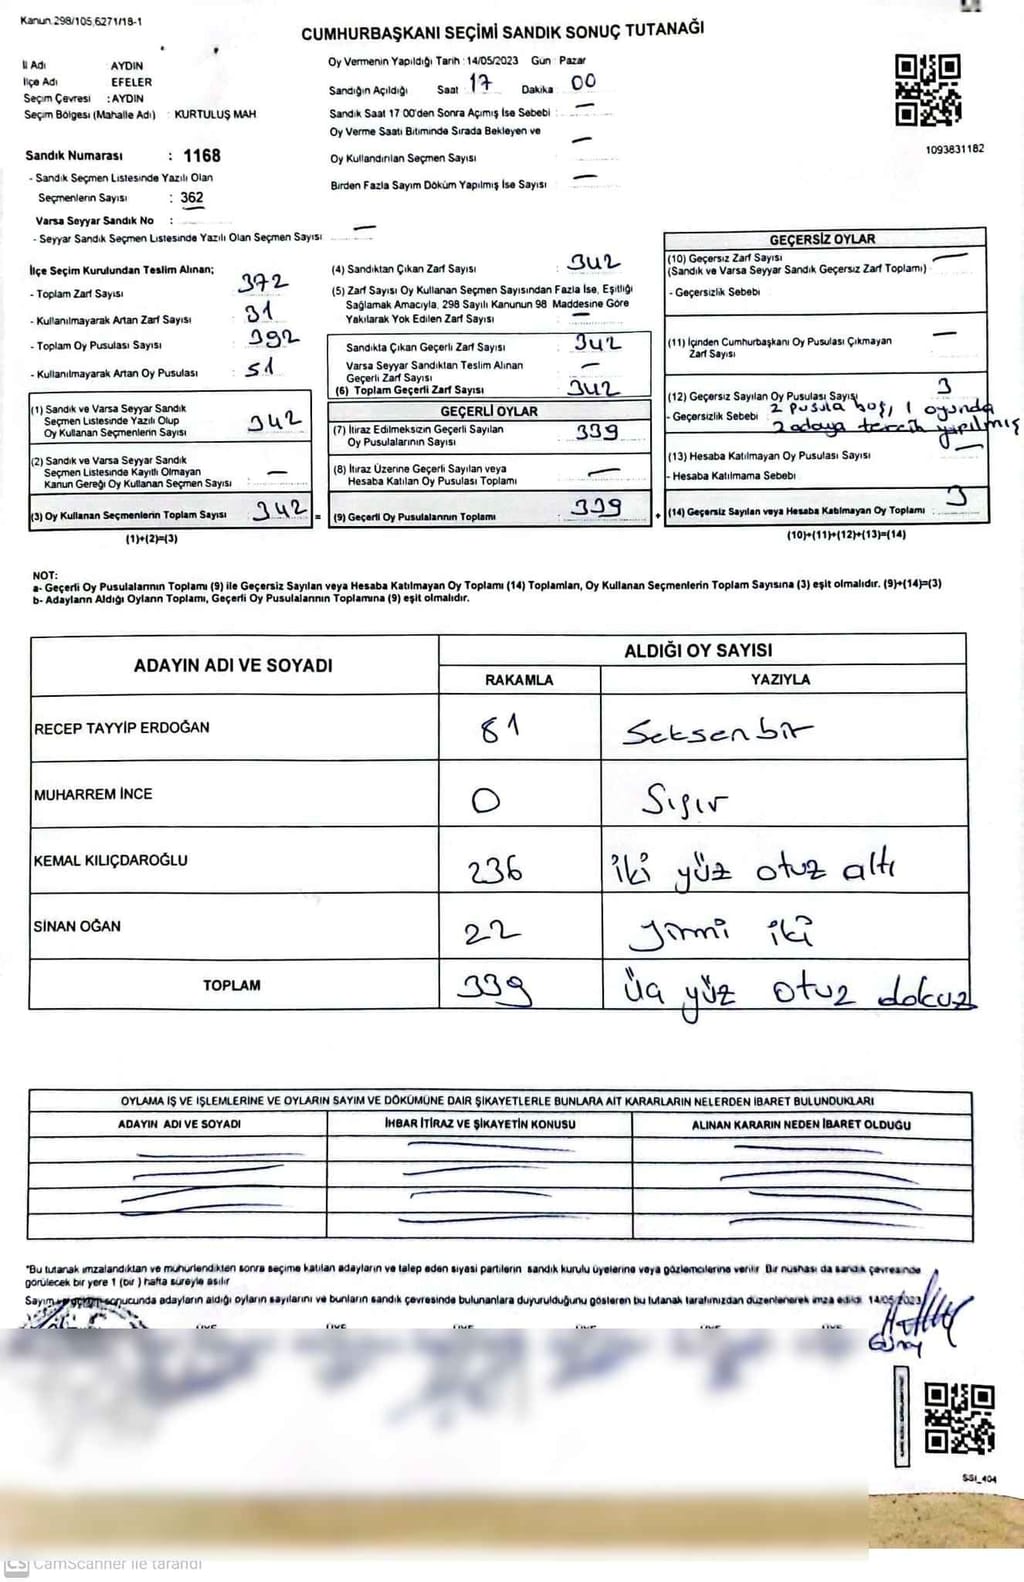 Kanun.298/105,6271/18-1
CUMHURBAŞKANI SEÇİMİ SANDIK SONUÇ TUTANAĞI
İl Adı AYDIN
İlçe Adı EFELER
Seçim Çevresi : AYDIN
Seçim Bölgesi (Mahalle Adı) : KURTULUŞ MAH
Sandık Numarası : 1168
- Sandık Seçmen Listesinde Yazılı Olan
Seçmenlerin Sayısı : 362
Varsa Seyyar Sandık No :
- Seyyar Sandık Seçmen Listesinde Yazılı Olan Seçmen Sayısı —
Oy Vermenin Yapıldığı Tarih : 14/05/2023 Gün : Pazar
Sandığın Açıldığı Saat 17 Dakika 00
Sandık Saat 17 00'den Sonra Açımış İse Sebebi : —
Oy Verme Saati Bitiminde Sırada Bekleyen ve
Oy Kullandırılan Seçmen Sayısı —
Birden Fazla Sayım Döküm Yapılmış İse Sayısı —
1093831182
İlçe Seçim Kurulundan Teslim Alınan;
- Toplam Zarf Sayısı 372
- Kullanılmayarak Artan Zarf Sayısı 31
- Toplam Oy Pusulası Sayısı 392
- Kullanılmayarak Artan Oy Pusulası : 51
(1) Sandık ve Varsa Seyyar Sandık
Seçmen Listesinde Yazılı Olup
Oy Kullanan Seçmenlerin Sayısı 342
(2) Sandık ve Varsa Seyyar Sandık
Seçmen Listesinde Kayıtlı Olmayan
Kanun Gereği Oy Kullanan Seçmen Sayısı —
(3) Oy Kullanan Seçmenlerin Toplam Sayısı 342 =
(1)+(2)=(3)
(4) Sandıktan Çıkan Zarf Sayısı 342
(5) Zarf Sayısı Oy Kullanan Seçmen Sayısından Fazla İse, Eşitliği
Sağlamak Amacıyla, 298 Sayılı Kanunun 98 Maddesine Göre
Yakılarak Yok Edilen Zarf Sayısı —
Sandıkta Çıkan Geçerli Zarf Sayısı 342
Varsa Seyyar Sandıktan Teslim Alınan
Geçerli Zarf Sayısı —
(6) Toplam Geçerli Zarf Sayısı 342
GEÇERLİ OYLAR
(7) İtiraz Edilmeksizin Geçerli Sayılan
Oy Pusulalarının Sayısı 339
(8) İtiraz Üzerine Geçerli Sayılan veya
Hesaba Katılan Oy Pusulası Toplamı —
(9) Geçerli Oy Pusulalarının Toplamı 339 +
GEÇERSİZ OYLAR
(10) Geçersiz Zarf Sayısı —
(Sandık ve Varsa Seyyar Sandık Geçersiz Zarf Toplamı)
- Geçersizlik Sebebi
(11) İçinden Cumhurbaşkanı Oy Pusulası Çıkmayan —
Zarf Sayısı
(12) Geçersiz Sayılan Oy Pusulası Sayısı 3
- Geçersizlik Sebebi 2 pusula boş, 1 oyunda
2 adaya tercih yapılmış
(13) Hesaba Katılmayan Oy Pusulası Sayısı —
- Hesaba Katılmama Sebebi
(14) Geçersiz Sayılan veya Hesaba Katılmayan Oy Toplamı 3
(10)+(11)+(12)+(13)=(14)
NOT:
a- Geçerli Oy Pusulalarının Toplamı (9) ile Geçersiz Sayılan veya Hesaba Katılmayan Oy Toplamı (14) Toplamları, Oy Kullanan Seçmenlerin Toplam Sayısına (3) eşit olmalıdır. (9)+(14)=(3)
b- Adayların Aldığı Oyların Toplamı, Geçerli Oy Pusulalarının Toplamına (9) eşit olmalıdır.
ADAYIN ADI VE SOYADI ALDIĞI OY SAYISI
RAKAMLA YAZIYLA
RECEP TAYYİP ERDOĞAN 81 Seksenbir
MUHARREM İNCE 0 Sıfır
KEMAL KILIÇDAROĞLU 236 iki yüz otuz altı
SİNAN OĞAN 22 yirmi iki
TOPLAM 339 Üç yüz otuz dokuz
OYLAMA İŞ VE İŞLEMLERİNE VE OYLARIN SAYIM VE DÖKÜMÜNE DAİR ŞİKAYETLERLE BUNLARA AİT KARARLARIN NELERDEN İBARET BULUNDUKLARI
ADAYIN ADI VE SOYADI İHBAR İTİRAZ VE ŞİKAYETİN KONUSU ALINAN KARARIN NEDEN İBARET OLDUĞU
*Bu tutanak imzalandıktan ve mühürlendikten sonra seçime katılan adayların ve talep eden siyasi partilerin sandık kurulu üyelerine veya gözlemcilerine verilir Bir nushası da sandık çevresinde
görülecek bir yere 1 (bir ) hafta süreyle asılır
Sayım sonucunda adayların aldığı oyların sayılarını ve bunların sandık çevresinde bulunanlara duyurulduğunu gösteren bu tutanak tarafımızdan düzenlenerek imza edildi 14/05/2023
ÜYE ÜYE ÜYE ÜYE ÜYE
SSI_404
CS CamScanner ile tarandı